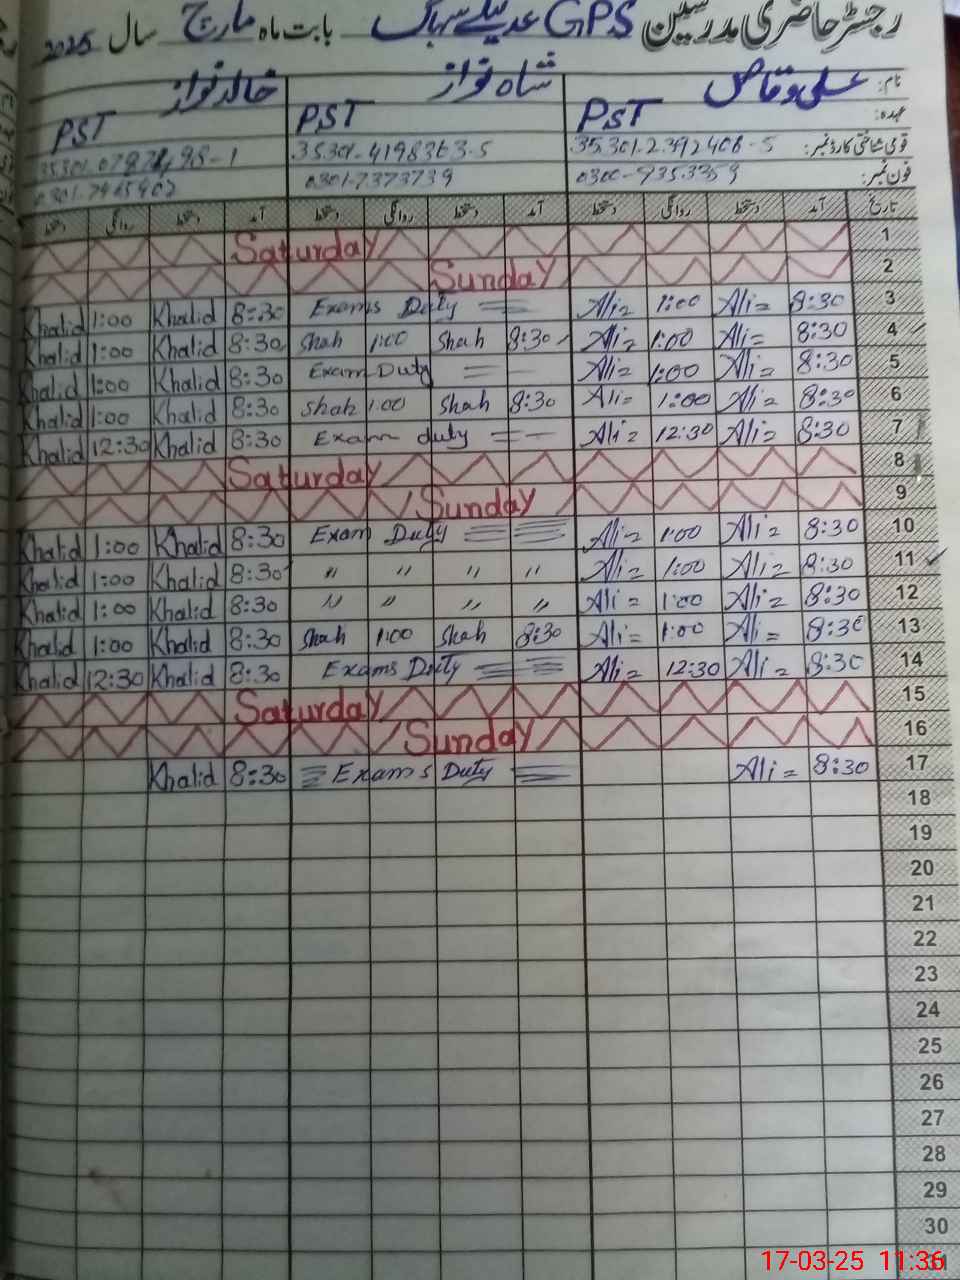 رجسٹر حاضری مدرسین GPS عدیلے سہاگ بابت ماہ مارچ سال 2025
نام: علی وقاص شاہ نواز خالد نواز
عہدہ: PST PST PST
قومی شناختی کارڈ نمبر: 35301-2392408-5 35301-4198363-5
فون نمبر: 0301-7373739
تاریخ آمد دستخط روانگی دستخط آمد دستخط روانگی دستخط آمد دستخط روانگی دستخط
Saturday 1
Sunday 2
Khalid 1:00 Khalid 8:30 Exams Duty Ali 1:00 Ali 8:30 3
Khalid 1:00 Khalid 8:30 Shah 1:00 Shah 8:30 Ali 1:00 Ali 8:30 4
Khalid 1:00 Khalid 8:30 Exam Duty Ali 1:00 Ali 8:30 5
Khalid 1:00 Khalid 8:30 Shah 1:00 Shah 8:30 Ali 1:00 Ali 8:30 6
Khalid 12:30 Khalid 8:30 Exam duty Ali 12:30 Ali 8:30 7
Saturday 8
Sunday 9
Khalid 1:00 Khalid 8:30 Exam Duty Ali 1:00 Ali 8:30 10
Khalid 1:00 Khalid 8:30 " " " " Ali 1:00 Ali 8:30 11
Khalid 1:00 Khalid 8:30 " " " " Ali 1:00 Ali 8:30 12
Khalid 1:00 Khalid 8:30 Shah 1:00 Shah 8:30 Ali 1:00 Ali 8:30 13
Khalid 12:30 Khalid 8:30 Exams Duty Ali 12:30 Ali 8:30 14
Saturday 15
Sunday 16
Khalid 8:30 Exams Duty Ali 8:30 17
18
19
20
21
22
23
24
25
26
27
28
29
30
31
17-03-25 11:36